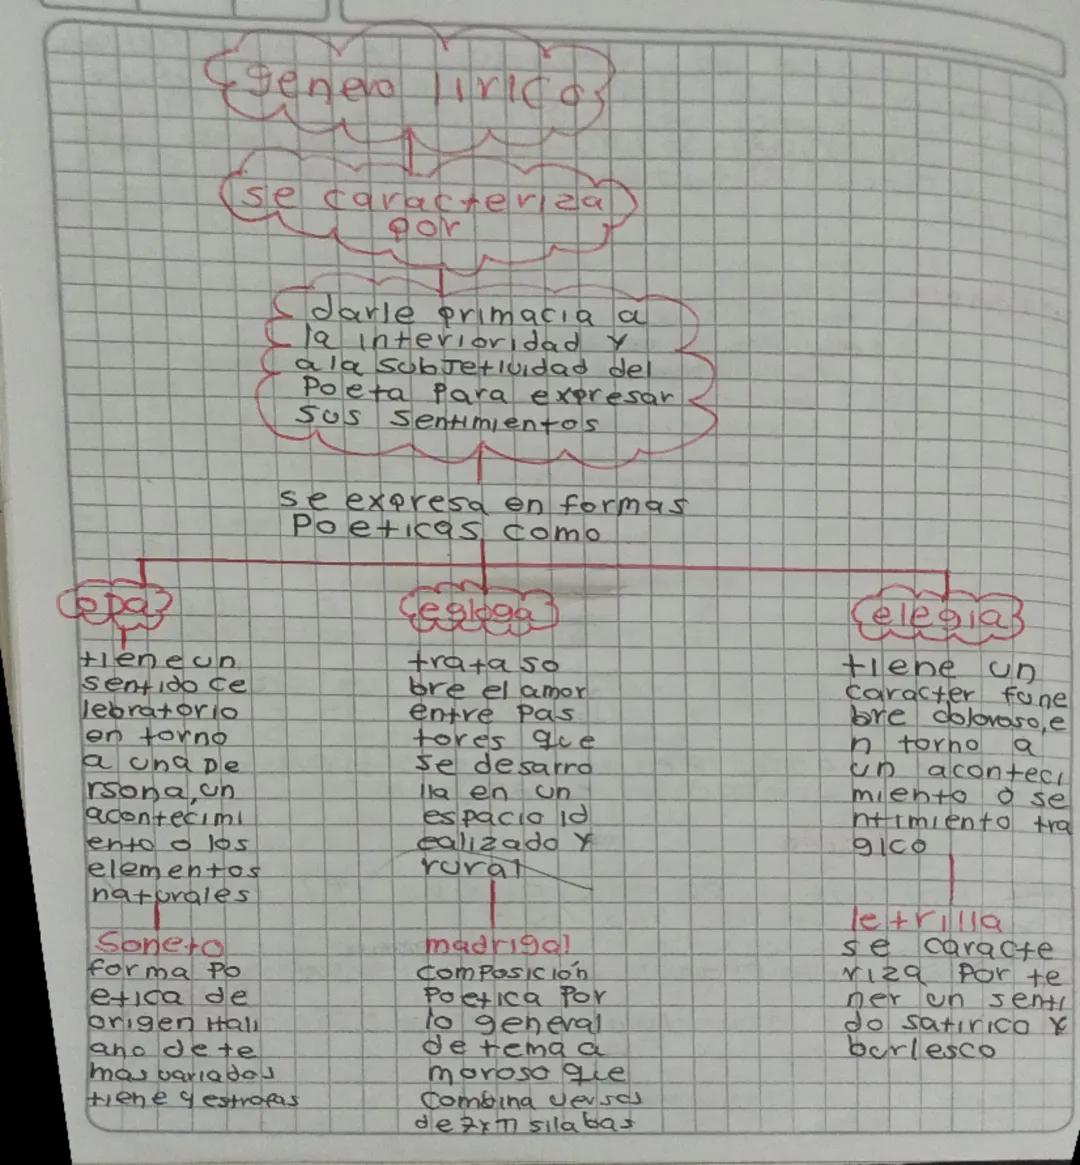 genero lirico
se caracteriza
por
darle primacia a
la interioridad y
a la subjetividad del
Poeta Para expresar
sus sentimientos
se expresa en formas
Poeticas como
opa
tiene un
sentido ce
lebratorio
en torno
a una pe
rsona, un
acontecimi
ento o los
elementos
naturales
Soneto
forma Po
etica de
origen itali
ano de te
mas variados
tiene 4 estrofas
egloga
trata so
bre el amor
entre pas
tores que
se desarro
lla en un
espacio id
ealizado y
rural
madrigal
composición
Poetica Por
lo general
de tema a
moroso que
combina versos
de 7 y 11 silabas
elegia
tiene un
caracter fune
bre doloroso, e
n torno a
un aconteci
miento o se
ntimiento tra
gico
letrilla
se caracte
riza por te
ner un senti
do satirico y
burlesco